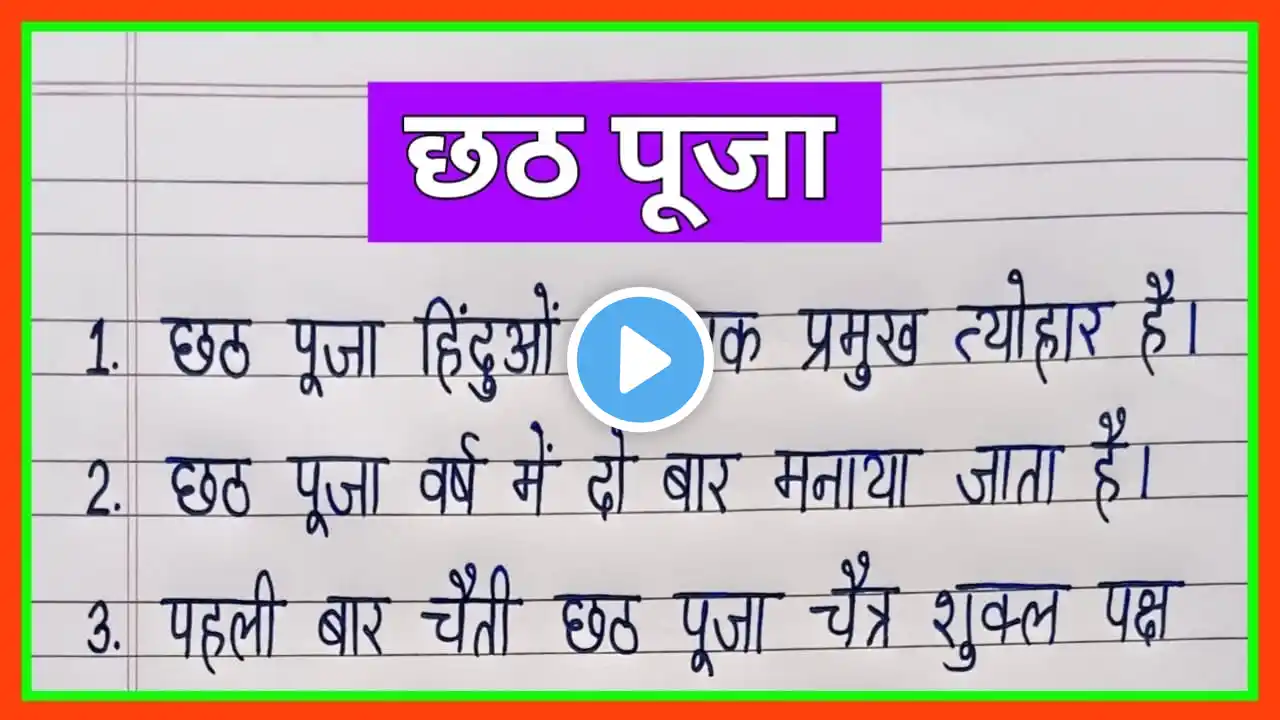 छठ पूजा
1. छठ पूजा हिंदुओं एक प्रमुख त्योहार है।
2. छठ पूजा वर्ष में दो बार मनाया जाता है।
3. पहली बार चैती छठ पूजा चैत्र शुक्ल पक्ष